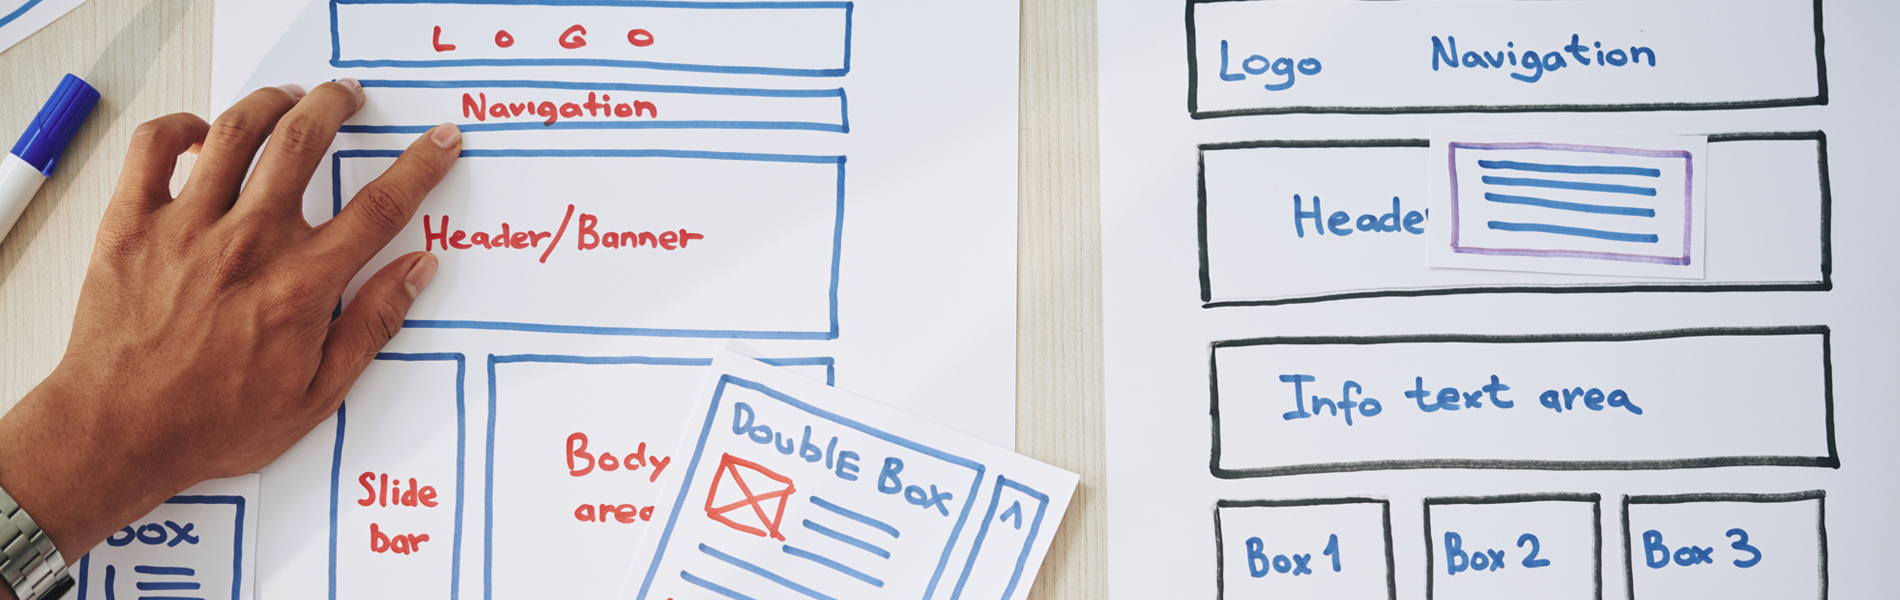 LOGO
Navigation
Header/Banner
Slide
bar
Body
area
Double Box
Box
Logo Navigation
Heade
Info text area
Box 1 Box 2 Box 3